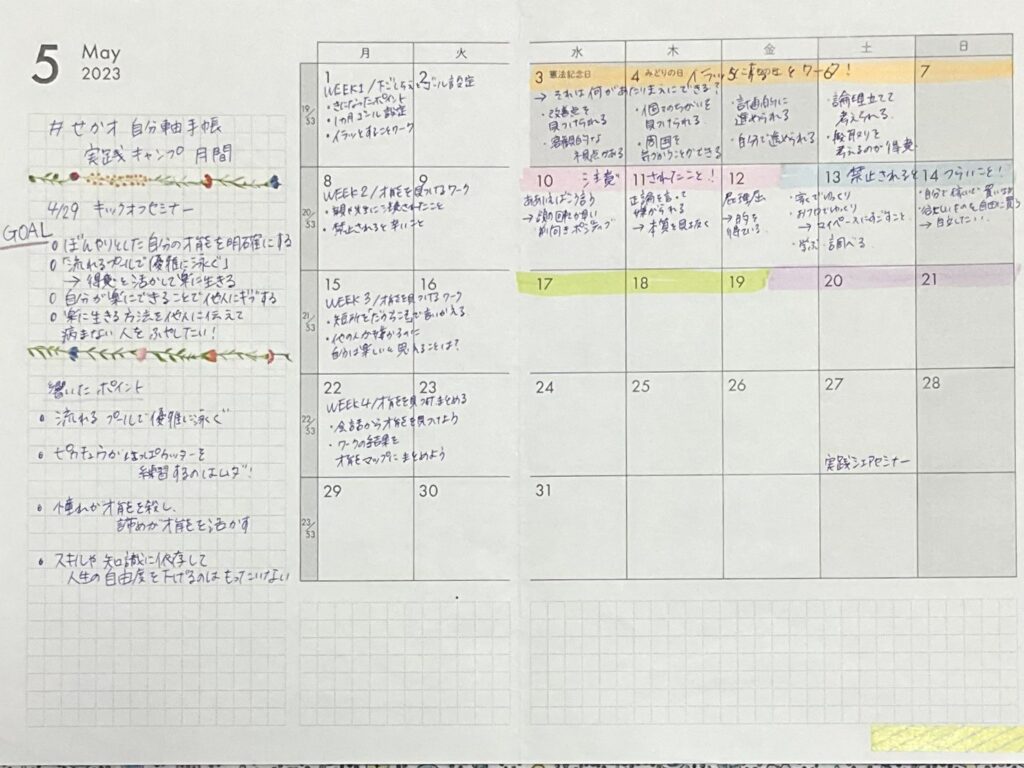 5 May
2023
#せかオ 自分軸手帳
実践キャンプ月間
4/29 キックオフセミナー
GOAL
○ ぼんやりとした自分の才能を明確にする
○「流れるプールで優雅に泳ぐ」
→ 得意を活かして楽に生きる
○ 自分が楽にできることで他人にギブする
○ 楽に生きる方法を他人に伝えて
病まない人をふやしたい!
響いたポイント
流れるプールで優雅に泳ぐ
ピカチュウがはっぱカッターを
練習するのはムダ!
憧れが才能を殺し、
諦めが才能を活かす
スキルや知識に依存して
人生の自由度を下げるのはもったいない
月 火 水 木 金 土 日
19/53
1 2
WEEK1/ ゴール設定
・きになったポイント
・1ヵ月ゴール設定
・イラッとすることワーク
3 憲法記念日
→ それは何があたり まえにできる?
・改善点を
見つけられる
・客観的な
視点がある
4 みどりの日 イラッ ワーク!
・個々のちがいを
見つけられる
・周囲を
気づかうことができる
・計画的に
進められる
・自分で進められる
・論理立てて
考えられる
・段取りを
考えるのが得意
7
20/53
8 9
WEEK2/才能を見つけるワーク
・親や夫に注意されたこと
・禁止されると辛いこと
10 注意
11 されたこと!
12
13 禁止されると
14 つらいこと!
ああいえばこう言う
前向きポジティブ
正論を言って
嫌がられる
→ 本質を見抜く
屁理屈
・家でゆっくり
・お風呂でゆっくり
→ マイペースにすごすこと
・学ぶ・調べる
→ 自立したい
21/53
15 16
WEEK3/才能を見つけるワーク
・短所を だからこそ で言いかえる
・他の人が嫌がるのに
自分は楽しいと思えることは?
17 18 19 20 21
22/53
22 23
WEEK4/才能を見つけ まとめる
・会話から才能を見つけよう
・ワークの結果を
才能マップにまとめよう
24 25 26 27 28
実践シェアセミナー
23/53
29 30 31